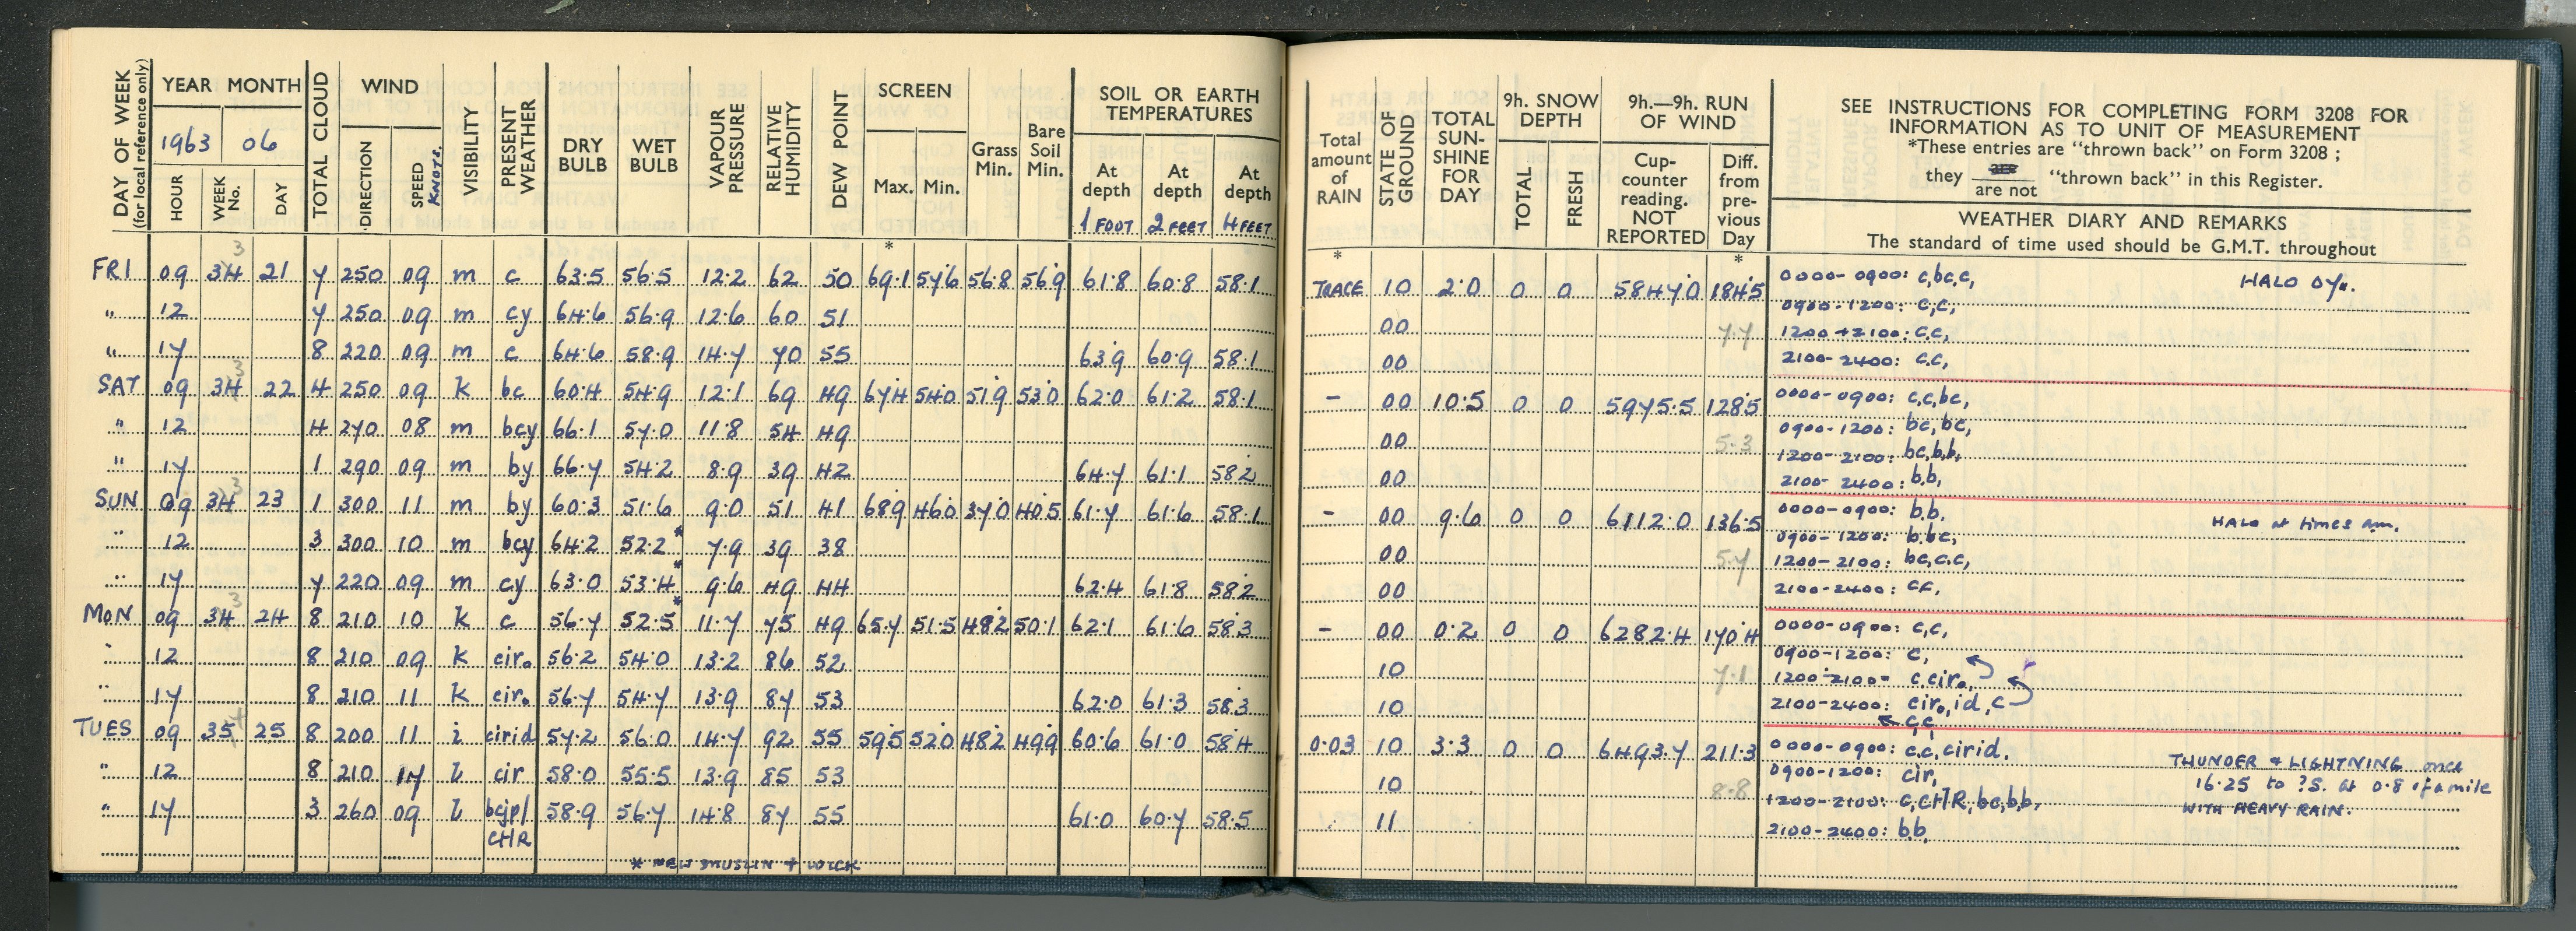 DAY OF WEEK
(for local reference only)
YEAR MONTH
1963 06
HOUR
WEEK No.
DAY
TOTAL CLOUD
WIND
DIRECTION
SPEED KNOTS.
VISIBILITY
PRESENT WEATHER
DRY BULB
WET BULB
VAPOUR PRESSURE
RELATIVE HUMIDITY
DEW POINT
SCREEN
Max. Min.
Grass Min.
Bare Soil Min.
SOIL OR EARTH
TEMPERATURES
At depth 1 FOOT
At depth 2 FEET
At depth 4 FEET
*
FRI 09 34 21 7 250 09 m c 63.5 56.5 12.2 62 50 69.1 57.6 56.8 56.9 61.8 60.8 58.1
" 12 7 250 09 m cy 64.6 56.9 12.6 60 51
" 17 8 220 09 m c 64.6 58.9 14.7 70 55 63.9 60.9 58.1
SAT 09 34 22 4 250 09 k bc 60.4 54.9 12.1 69 49 67.4 54.0 51.9 53.0 62.0 61.2 58.1
" 12 4 270 08 m bcy 66.1 57.0 11.8 54 49
" 17 1 290 09 m by 66.7 54.2 8.9 39 42 64.7 61.1 58.2
SUN 09 34 23 1 300 11 m by 60.3 51.6 9.0 51 41 68.9 46.0 37.0 40.5 61.7 61.6 58.1
" 12 3 300 10 m bcy 64.2 52.2* 7.9 39 38
" 17 7 220 09 m cy 63.0 53.4* 9.6 49 44 62.4 61.8 58.2
MON 09 34 24 8 210 10 k c 56.7 52.5* 11.7 75 49 65.7 51.5 48.2 50.1 62.1 61.6 58.3
" 12 8 210 09 k ciro 56.2 54.0 13.2 86 52
" 17 8 210 11 k ciro 56.7 54.7 13.9 87 53 62.0 61.3 58.3
TUES 09 35 25 8 200 11 i cirid 57.2 56.0 14.7 92 55 59.5 52.0 48.2 49.9 60.6 61.0 58.4
" 12 8 210 14 l cir 58.0 55.5 13.9 85 53
" 17 3 260 09 l bcjp/ 58.9 56.7 14.8 87 55 61.0 60.7 58.5
CHR
* NEW MUSLIN + WICK
Total amount of RAIN
STATE OF GROUND
TOTAL SUN-SHINE FOR DAY
9h. SNOW DEPTH
TOTAL
FRESH
9h.—9h. RUN OF WIND
Cup-counter reading. NOT REPORTED
Diff. from pre-vious Day
SEE INSTRUCTIONS FOR COMPLETING FORM 3208 FOR
INFORMATION AS TO UNIT OF MEASUREMENT
*These entries are "thrown back" on Form 3208 ;
they are / are not "thrown back" in this Register.
WEATHER DIARY AND REMARKS
The standard of time used should be G.M.T. throughout
* *
TRACE 10 2.0 0 0 5847.0 184.5 0000-0900: c,bc,c, HALO 07..
0900-1200: c,c,
00 7.7 1200-2100: c.c,
00 2100-2400: c.c,
- 00 10.5 0 0 5975.5 128.5 0000-0900: c,c,bc,
0900-1200: bc,bc,
00 5.3 1200-2100: bc,b,b,
00 2100-2400: b.b,
- 00 9.6 0 0 6112.0 136.5 0000-0900: b.b. HALO at times am.
0900-1200: b.bc,
00 5.7 1200-2100: bc,c.c,
00 2100-2400: cc,
- 00 0.2 0 0 6282.4 170.4 0000-0900: c,c,
0900-1200: c,
10 7.1 1200-2100- c.ciro,
10 2100-2400: ciro,id,c
c,c,
0.03 10 3.3 0 0 6493.7 211.3 0000-0900: c.c,cirid.
THUNDER & LIGHTNING once
0900-1200: cir,
10 8.8 16.25 to ?S. at 0.8 of a mile
1200-2100: c,CHR,bc,b.b,
WITH HEAVY RAIN.
11 2100-2400: b.b